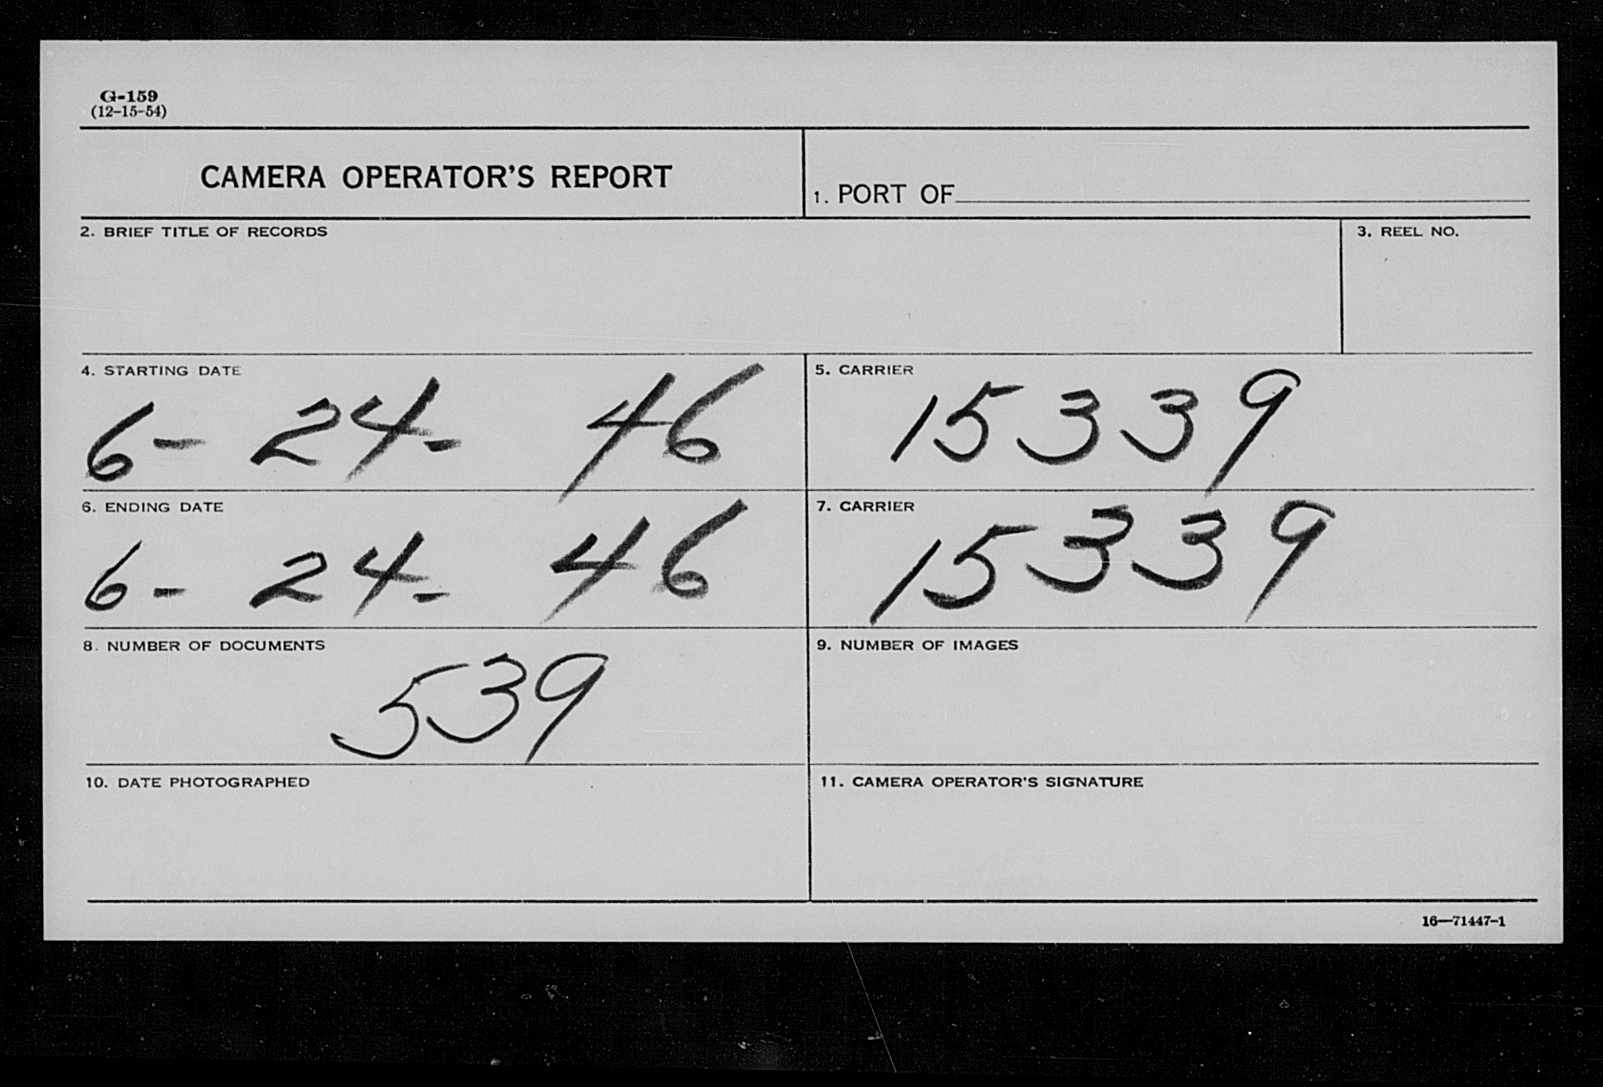 G-159
(12-15-54)
CAMERA OPERATOR'S REPORT
1. PORT OF
2. BRIEF TITLE OF RECORDS
3. REEL NO.
4. STARTING DATE
6- 24- 46
5. CARRIER
15339
6. ENDING DATE
6- 24- 46
7. CARRIER
15339
8. NUMBER OF DOCUMENTS
539
9. NUMBER OF IMAGES
10. DATE PHOTOGRAPHED
11. CAMERA OPERATOR'S SIGNATURE
16—71447-1